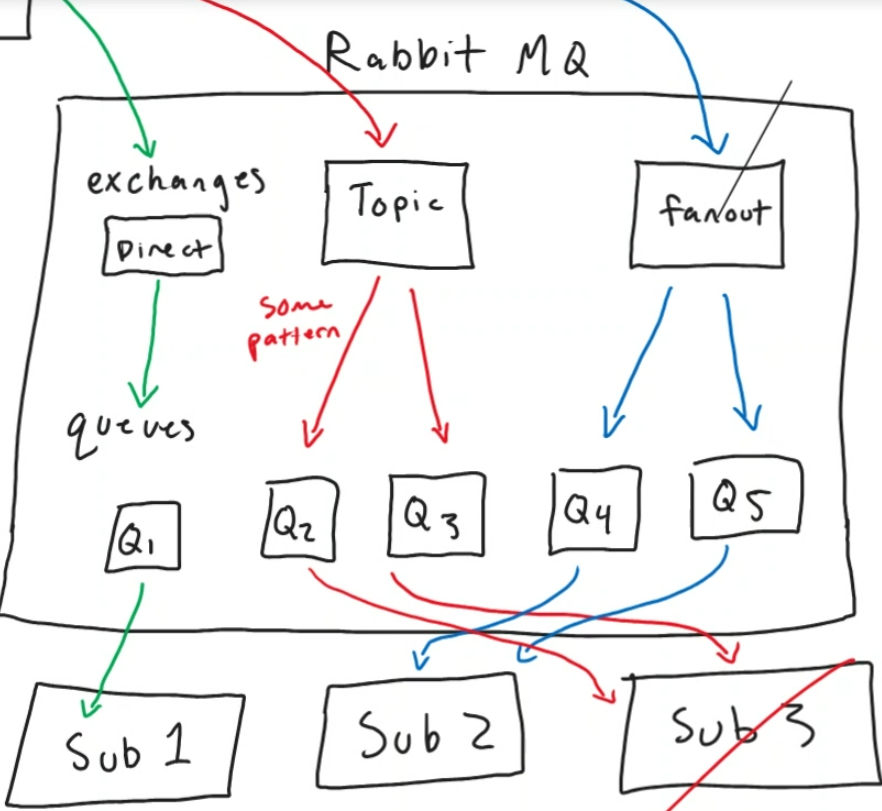 Rabbit MQ
exchanges
Direct
Topic
fanout
some
pattern
queues
Q1
Q2
Q3
Q4
Q5
Sub 1
Sub 2
Sub 3